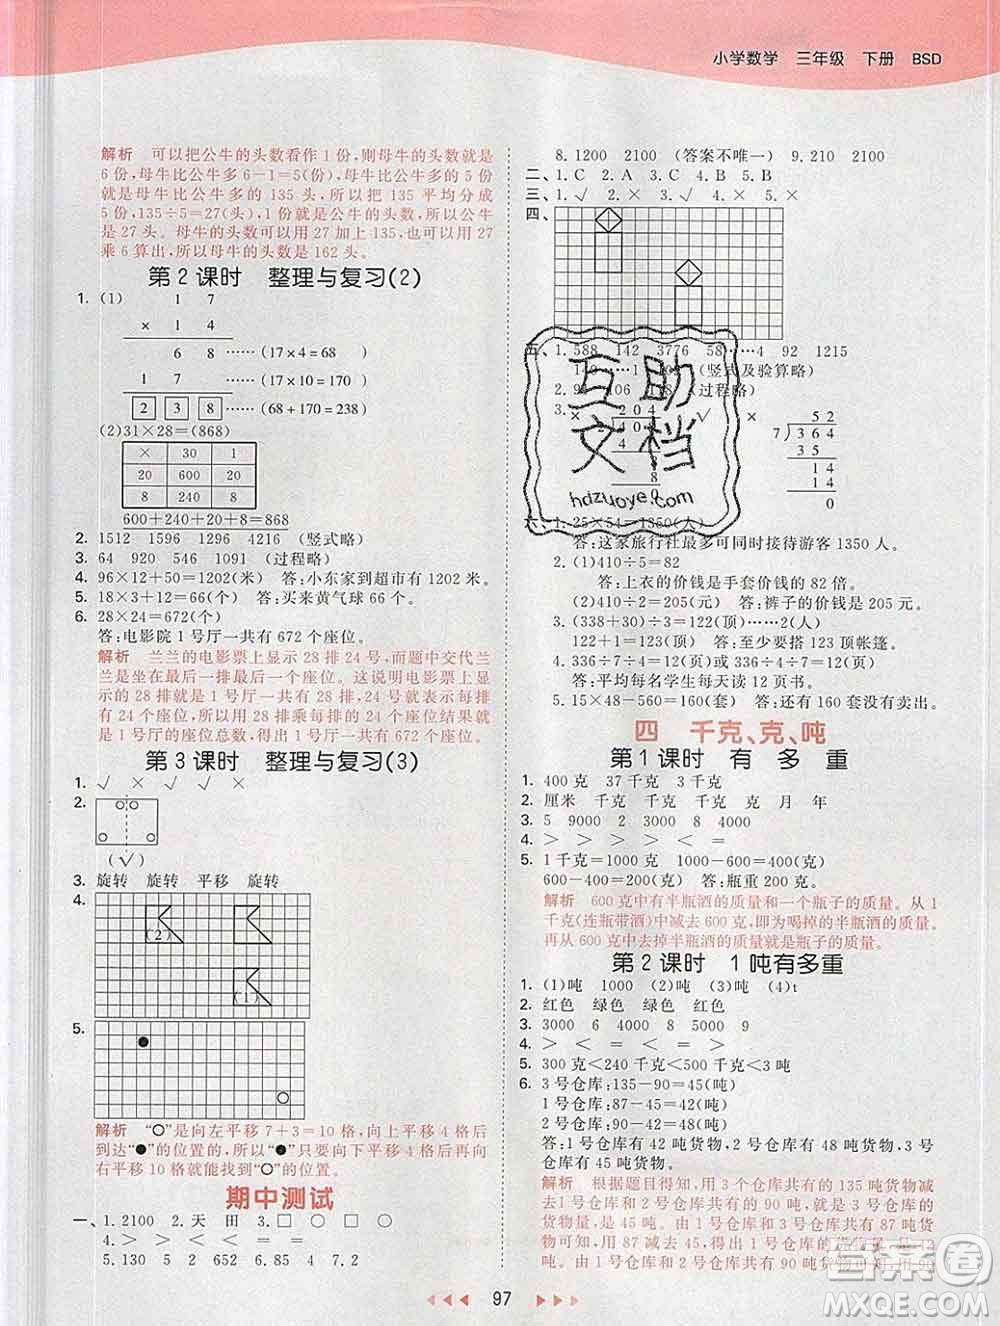 小学数学 三年级 下册 BSD
解析 可以把公牛的头数看作1份,则母牛的头数就是
6份,母牛比公牛多6-1=5(份),母牛比公牛多的5份
就是母牛比公牛多的135头,所以把135平均分成
5份,135÷5=27(头),1份就是27头,所以公牛
是27头。母牛的头数就用27加上135,或者用27
乘6算出,所以母牛的头数是162头。
第2课时 整理与复习(2)
1. (1) 1 7
× 1 4
6 8 ……(17×4=68)
1 7 ……(17×10=170)
2 3 8 ……(68+170=238)
(2)31×28=(868)
× 30 1
20 600 20
8 240 8
600+240+20+8=868
2. 1512 1596 1296 4216 (竖式略)
3. 64 920 546 1091 (过程略)
4. 96×12+50=1202(米) 答:小东家到超市有1202米。
5. 18×3+12=66(个) 答:买来黄气球66个。
6. 28×24=672(个)
答:电影院1号厅一共有672个座位。
解析 兰兰的电影票上显示28排24号,而题中交代兰
兰是坐在最后一排最后一个座位。这说明电影票上显
示的28排就是1号厅一共有28排,24号就表示每排
有24个座位。所以用28排乘每排的24个座位可以求
出1号厅的座位总数,得出1号厅一共有672个座位。
第3课时 整理与复习(3)
1. √ × √ × √
2.
(√)
3. 旋转 旋转 平移 旋转
4.
(2)
(1)
5.
解析 “○”是向左平移7+3=10格,向上平移4格后
到达“●”的位置的,所以“●”只要向下平移4格,再向
右平移10格就能找到“○”的位置。
期中测试
一、1. 2100 2. 天 田 3. □ □ ○ ○
4. > > < < = <
5. 130 5 2 652 6. 85 7. 2
8. 1200 2100 (答案不唯一) 9. 210 2100
二、1. C 2. A 3. C 4. B 5. B
三、1. √ 2. × 3. × 4. × 5. √
四、
五、1. 588 142 3776 58……4 92 1215
(竖式及验算略)
2. 106 (过程略)
3. × 2 0 4
√
×
5 2
7 3 6 4
3 5
1 4
1 4
0
六、1. 25×54=1350(人)
答:这家旅行社最多可同时接待游客1350人。
2. (1)410÷5=82
答:上衣的价钱是手套价钱的82倍。
(2)410÷2=205(元) 答:裤子的价钱是205元。
3. (338+30)÷3=122(顶)……2(人)
122+1=123(顶) 答:至少要搭123顶帐篷。
4. 336÷7÷4=12(页) 336÷4÷7=12(页)
答:平均每名学生每天读12页书。
5. 15×48-560=160(套) 答:还有160套没有卖出。
四 千克、克、吨
第1课时 有多重
1. 400克 37千克 3千克
2. 厘米 千克 千克 千克 克 月 年
3. 5 9000 2 3000 8 4000
4. > > > > < =
5. 1千克=1000克 1000-600=400(克)
600-400=200(克) 答:瓶重200克。
解析 600克中有半瓶酒的质量和一个瓶子的质量。从1
千克(连瓶带酒)中减去600克,即为喝掉的半瓶酒的质量。
再从600克中去掉半瓶酒的质量就是瓶子的质量。
第2课时 1吨有多重
1. (1)吨 1000 (2)吨 (3)吨 (4)t
2. 红色 绿色 绿色 红色
3. 3000 6 4 8000 5000 9
4. > < = < > <
5. 300克<240千克<300千克<3吨
6. 3号仓库:135-90=45(吨)
1号仓库:87-45=42(吨)
2号仓库:90-42=48(吨)
答:1号仓库有42吨货物,2号仓库有48吨货物,3号
仓库有45吨货物。
解析 根据题目得知,用3个仓库共有的135吨货物减
去1号仓库和2号仓库共有的90吨,可知3号仓库
的货物量为45吨。由1号仓库和3号仓库共有87吨
货物可知,用87减去45,可知1号仓库有42吨货物。
由1号仓库和2号仓库共有90吨货物可知,用90减
97
互助
文档
hdzuoye.com
答案圈
MXQE.COM